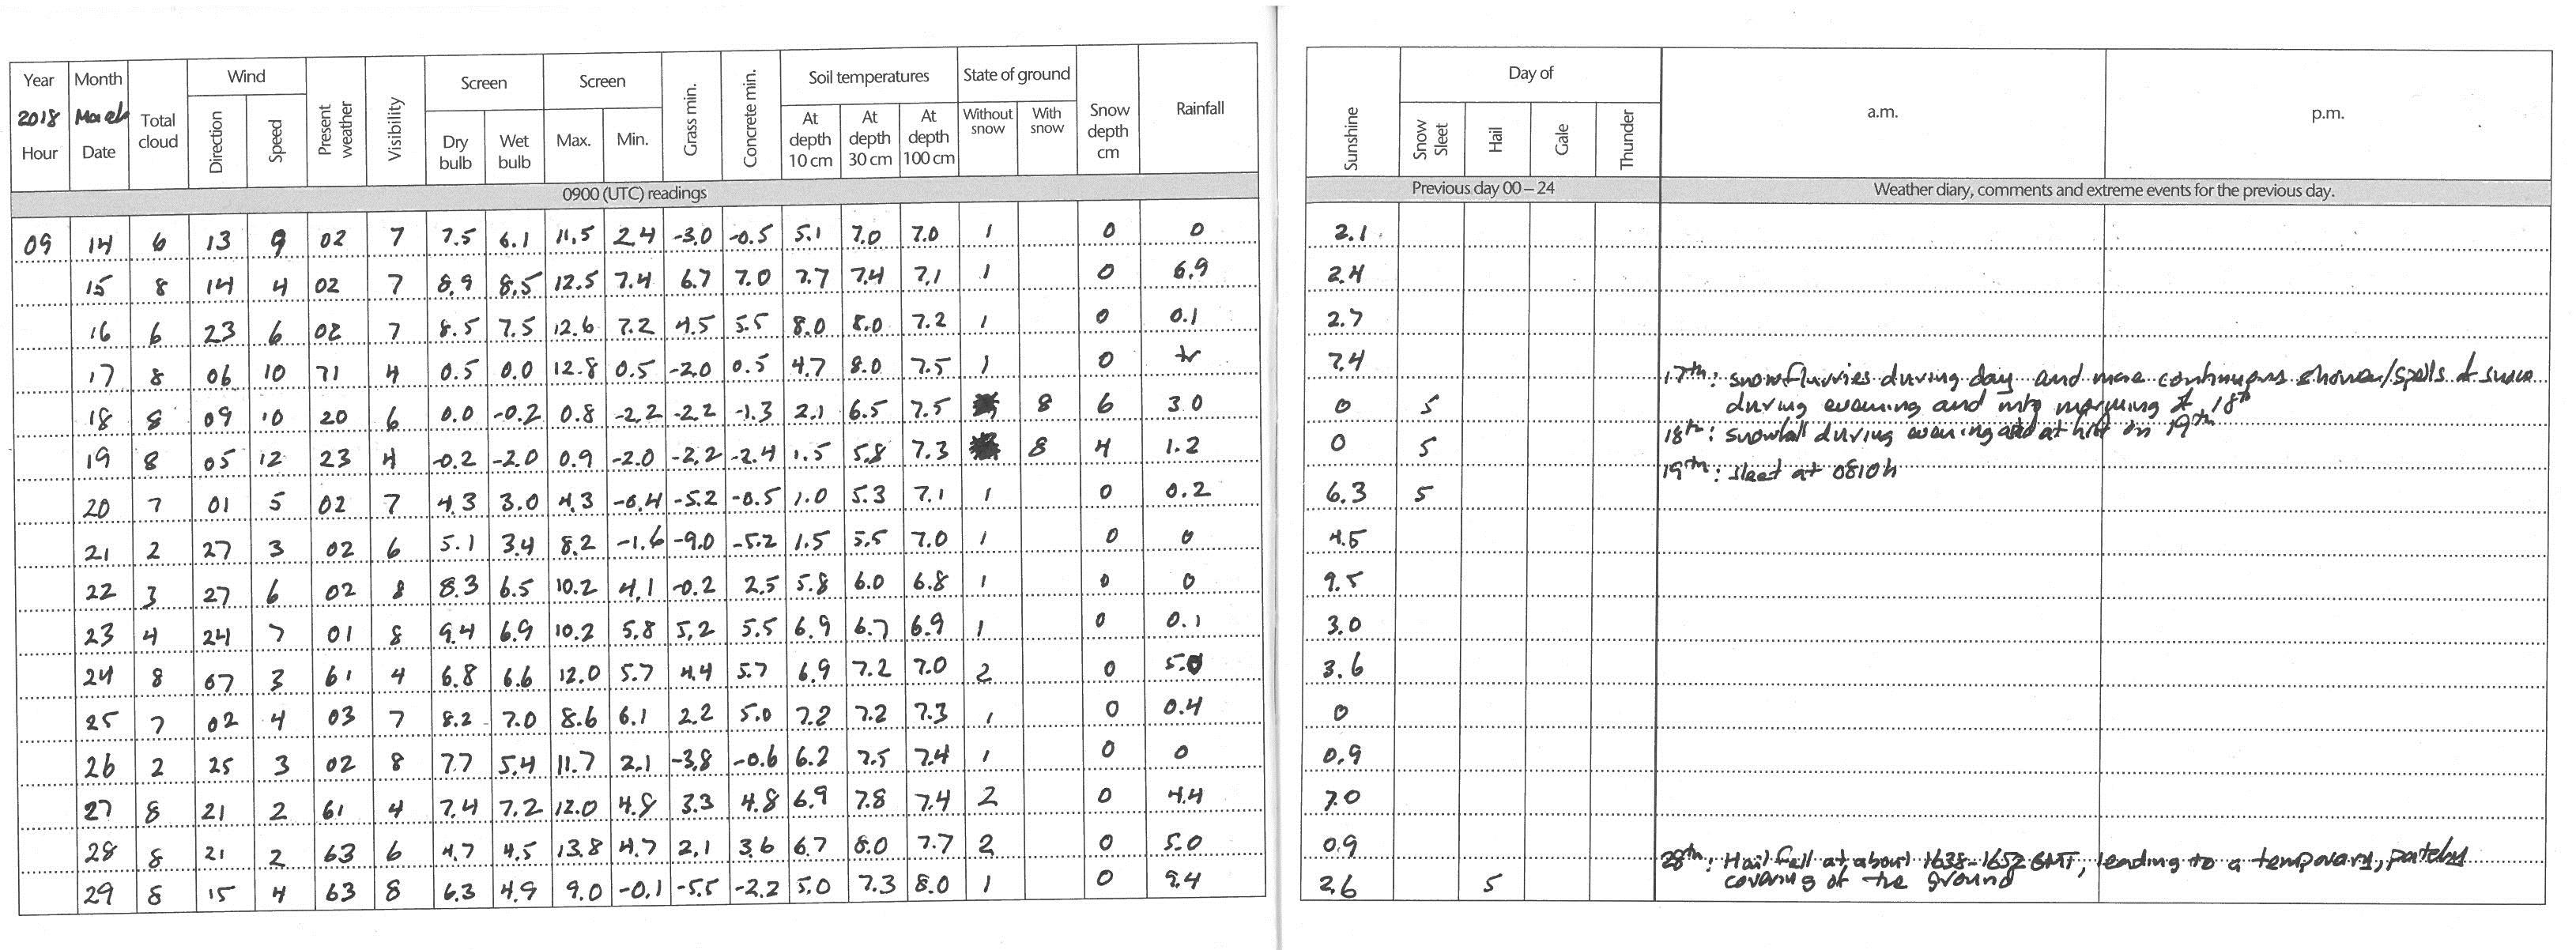 Year Month Total cloud Wind Present weather Visibility Screen Screen Grass min. Concrete min. Soil temperatures State of ground Snow depth cm Rainfall
2018 March Direction Speed Dry bulb Wet bulb Max. Min. At depth 10 cm At depth 30 cm At depth 100 cm Without snow With snow
Hour Date
0900 (UTC) readings
09 14 6 13 9 02 7 7.5 6.1 11.5 2.4 -3.0 -0.5 5.1 7.0 7.0 1 0 0
15 8 14 4 02 7 8.9 8.5 12.5 7.4 6.7 7.0 7.7 7.4 7.1 1 0 6.9
16 6 23 6 02 7 8.5 7.5 12.6 7.2 4.5 5.5 8.0 8.0 7.2 1 0 0.1
17 8 06 10 71 4 0.5 0.0 12.8 0.5 -2.0 0.5 4.7 8.0 7.5 1 0 tr
18 8 09 10 20 6 0.0 -0.2 0.8 -2.2 -2.2 -1.3 2.1 6.5 7.5 8 6 3.0
19 8 05 12 23 4 -0.2 -2.0 0.9 -2.0 -2.2 -2.4 1.5 5.8 7.3 8 4 1.2
20 7 01 5 02 7 4.3 3.0 4.3 -0.4 -5.2 -0.5 1.0 5.3 7.1 1 0 0.2
21 2 27 3 02 6 5.1 3.4 8.2 -1.6 -9.0 -5.2 1.5 5.5 7.0 1 0 0
22 3 27 6 02 8 8.3 6.5 10.2 4.1 -0.2 2.5 5.8 6.0 6.8 1 0 0
23 4 24 7 01 8 9.4 6.9 10.2 5.8 5.2 5.5 6.9 6.7 6.9 1 0 0.1
24 8 07 3 61 4 6.8 6.6 12.0 5.7 4.4 5.7 6.9 7.2 7.0 2 0 5.0
25 7 02 4 03 7 8.2 7.0 8.6 6.1 2.2 5.0 7.2 7.2 7.3 1 0 0.4
26 2 25 3 02 8 7.7 5.4 11.7 2.1 -3.8 -0.6 6.2 7.5 7.4 1 0 0
27 8 21 2 61 4 7.4 7.2 12.0 4.8 3.3 4.8 6.9 7.8 7.4 2 0 4.4
28 8 21 2 63 6 4.7 4.5 13.8 4.7 2.1 3.6 6.7 8.0 7.7 2 0 5.0
29 8 15 4 63 8 6.3 4.9 9.0 -0.1 -5.5 -2.2 5.0 7.3 8.0 1 0 9.4
Sunshine Day of a.m. p.m.
Snow Sleet Hail Gale Thunder
Previous day 00 – 24 Weather diary, comments and extreme events for the previous day.
2.1
2.4
2.7
7.4
17th: snow flurries during day and more continuous shower/spells of snow
0 5 during evening and into morning of 18th
18th: snowfall during evening and at hit on 19th
0 5
19th: sleet at 0810h
6.3 5
4.5
9.5
3.0
3.6
0
0.9
7.0
0.9
28th: Hail fall at about 1638-1652 GMT, leading to a temporary, patchy
2.6 5 covering of the ground